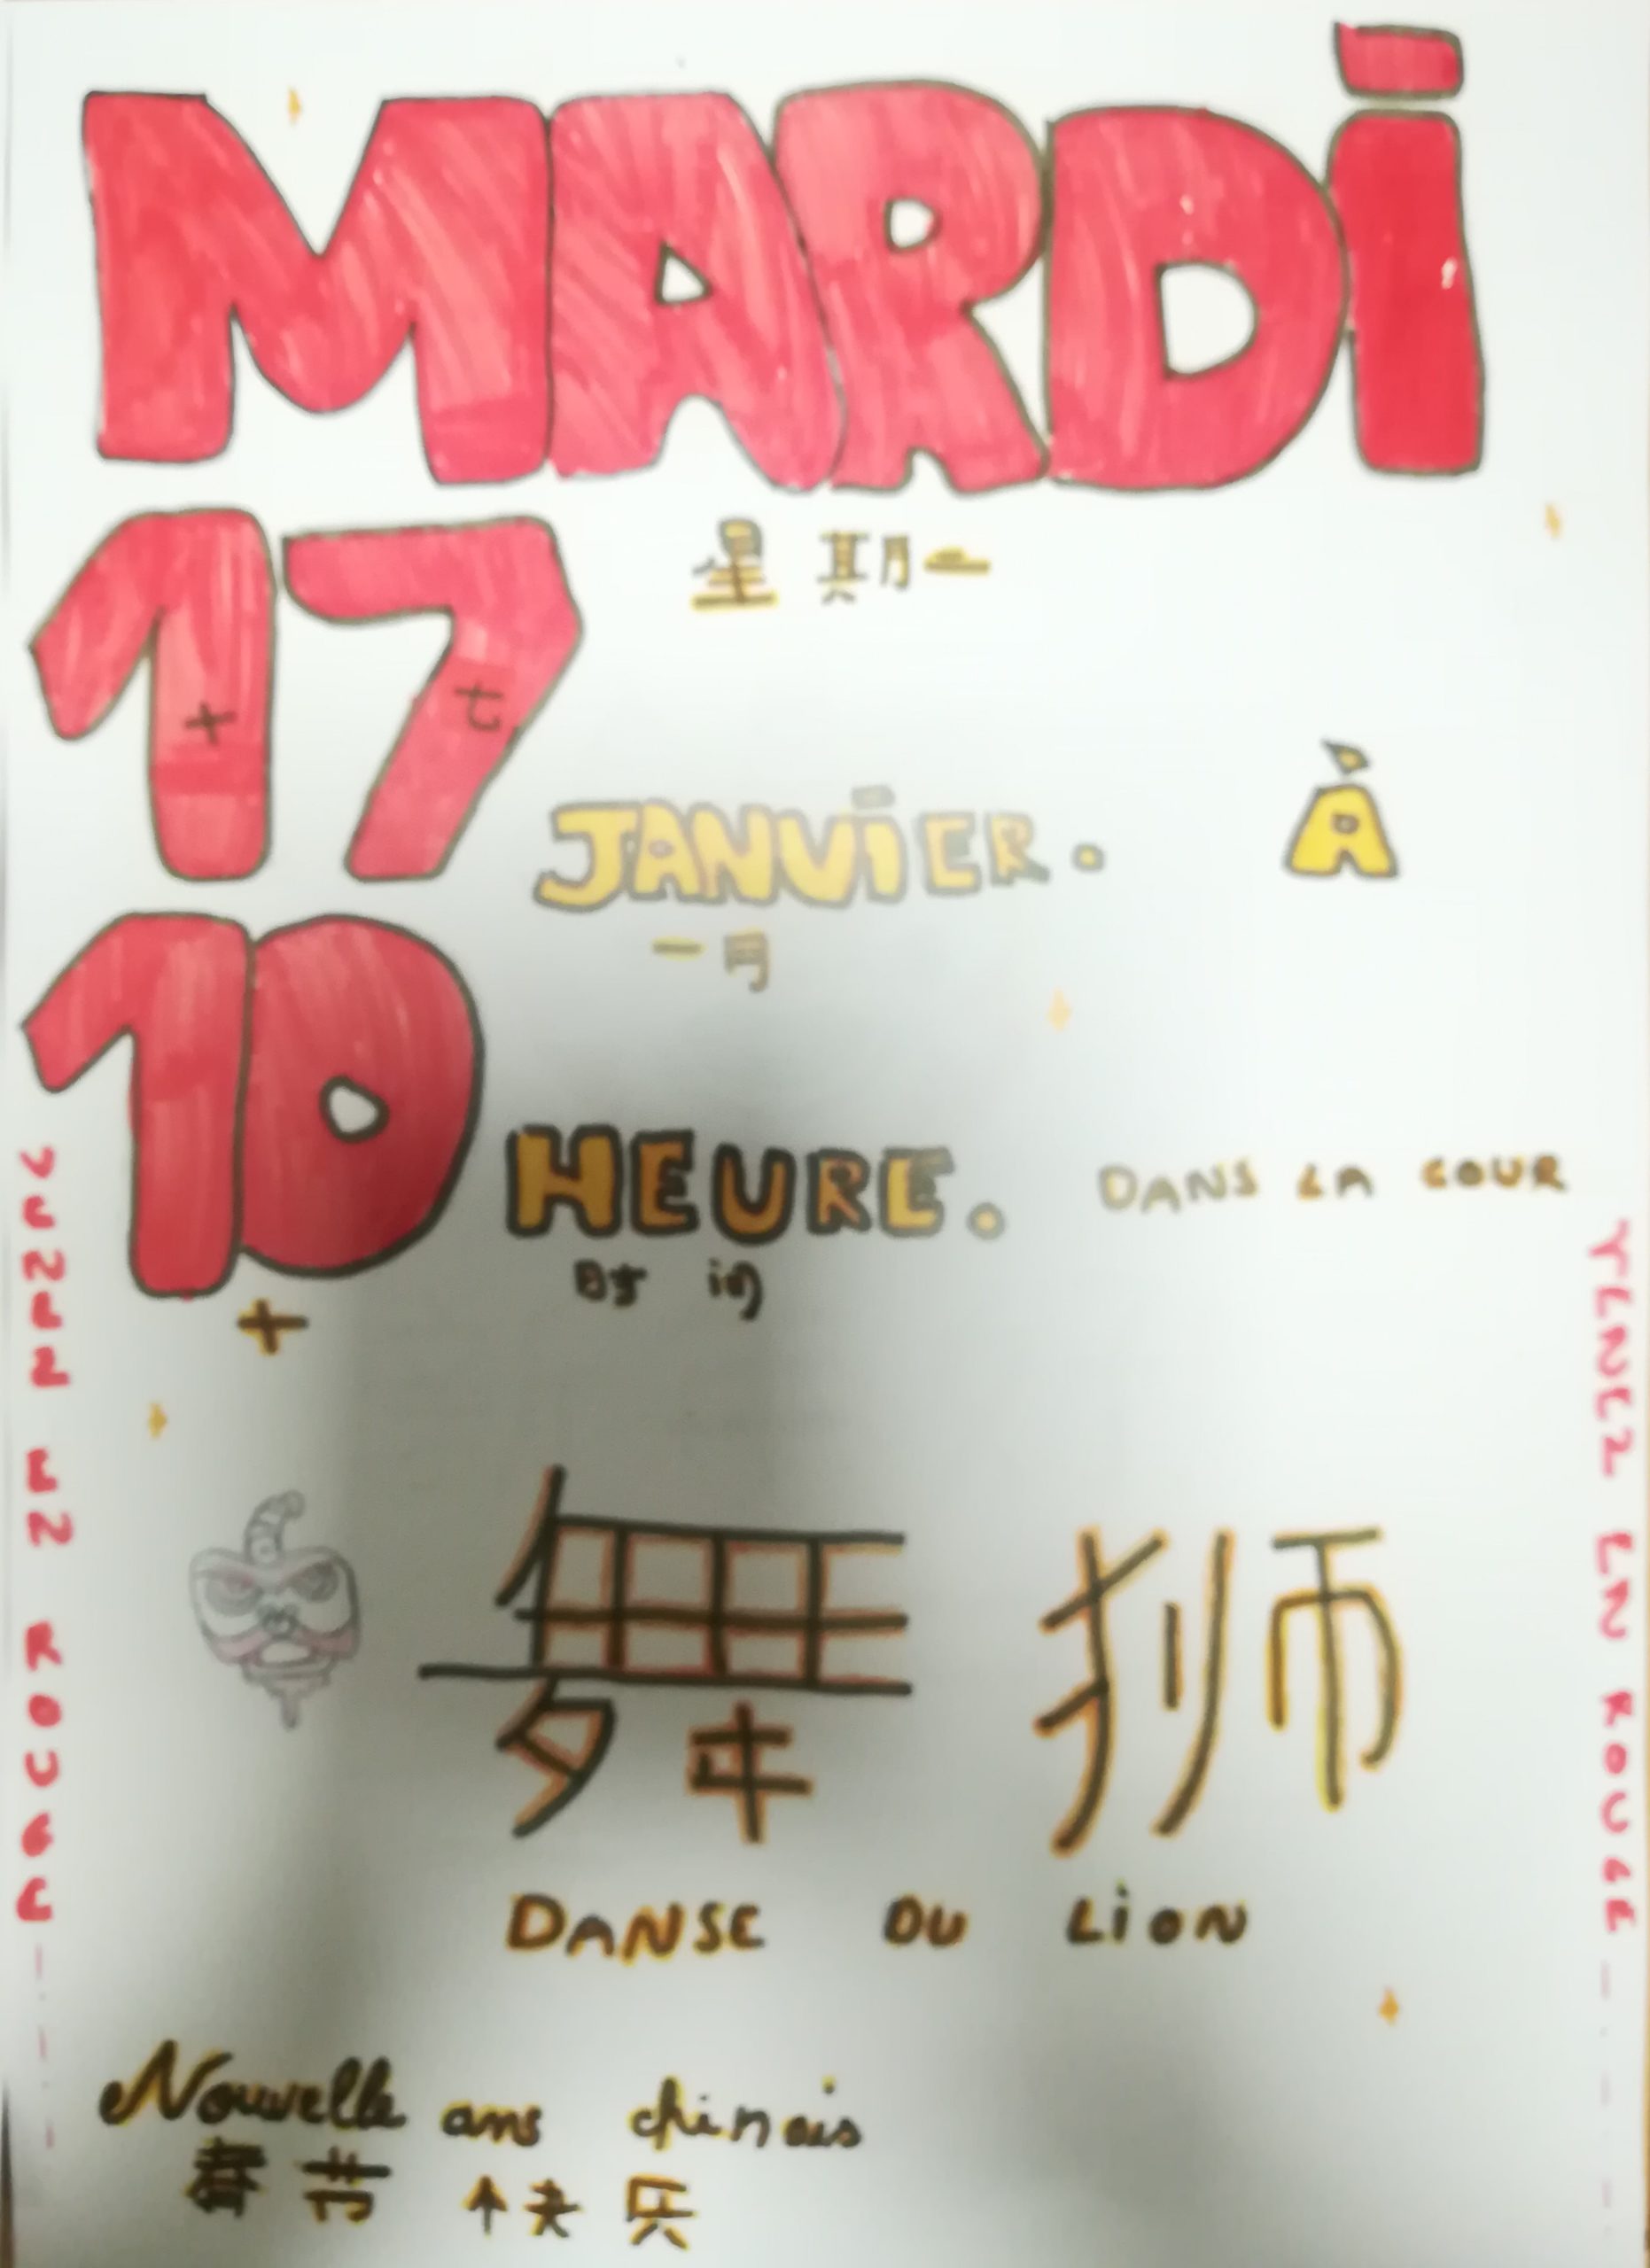 MARDI
17
星期二
十 七
JANVIER. À
一月
10 HEURE. DANS LA COUR
时间
十
VENEZ EN ROUGE
VENEZ EN ROUGE
舞 狮
DANSE DU LION
Nouvelle ans chinois
春节 快乐